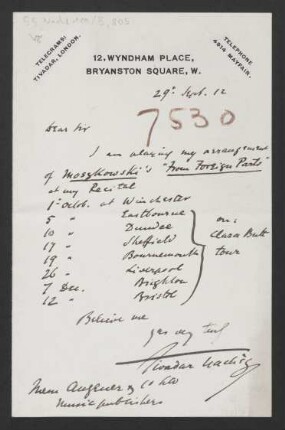 TELEGRAMS:
TIVADAR, LONDON.
TELEPHONE
4014 MAYFAIR.
12. WYNDHAM PLACE,
BRYANSTON SQUARE, W.
29th Sept. 12
7530
Dear Sir
I am playing my arrangement
of Moszkowski's "From Foreign Parts"
at my Recital
1st Octob. at Winchester
5 " Eastbourne
10 " Dundee
17 " Sheffield
19 " Bournemouth
26 " Liverpool
7 Dec. Brighton
12 " Bristol
on
Clara Butt
tour
Believe me
yrs very truly
Tivadar Nachèz
Messrs Augener & Co Ltd
Music publishers